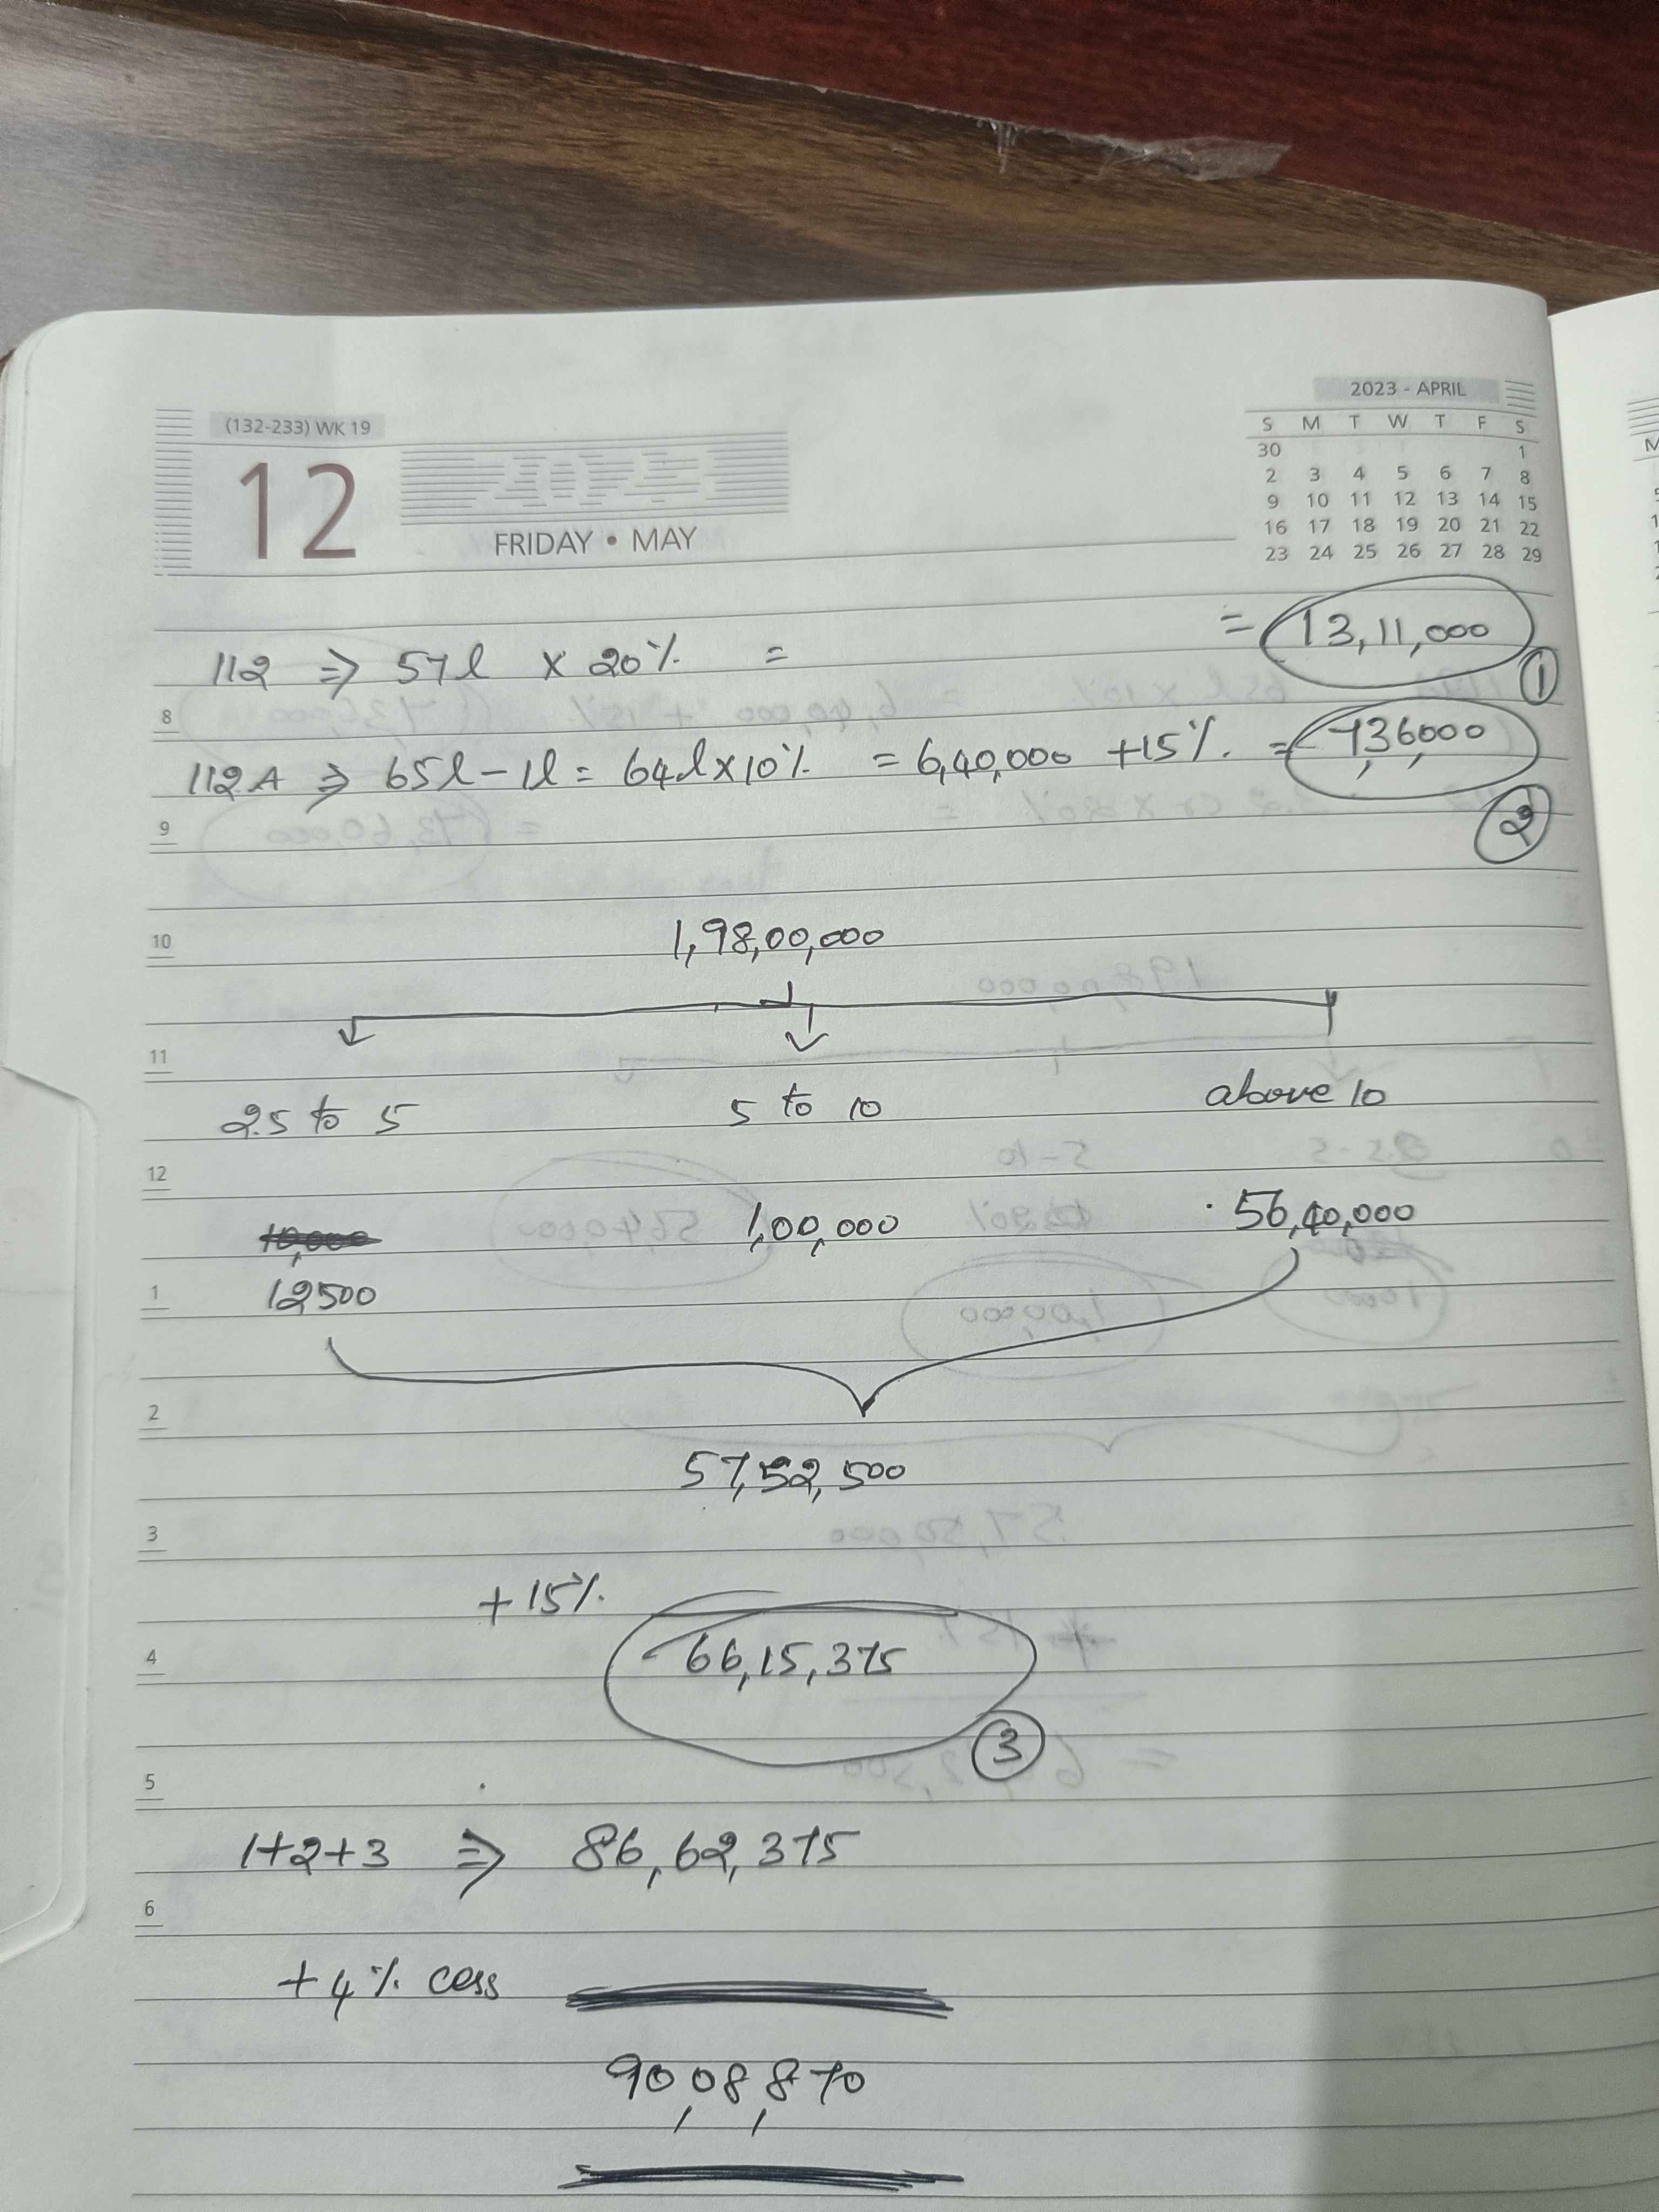 (132-233) WK 19
12
2023
FRIDAY • MAY
2023 - APRIL
S M T W T F S
30 1
2 3 4 5 6 7 8
9 10 11 12 13 14 15
16 17 18 19 20 21 22
23 24 25 26 27 28 29
112 ⇒ 57l x 20% = = 13,11,000
①
8
112A ⇒ 65l - 1l = 64l x 10% = 6,40,000 + 15% = 7,36,000
②
9
10
1,98,00,000
11
2.5 to 5 5 to 10 above 10
12
10,000 1,00,000 56,40,000
1
12500
2
57,52,500
3
+15%
4
66,15,375
③
5
1+2+3 ⇒ 86,62,375
6
+4% cess
90,08,870